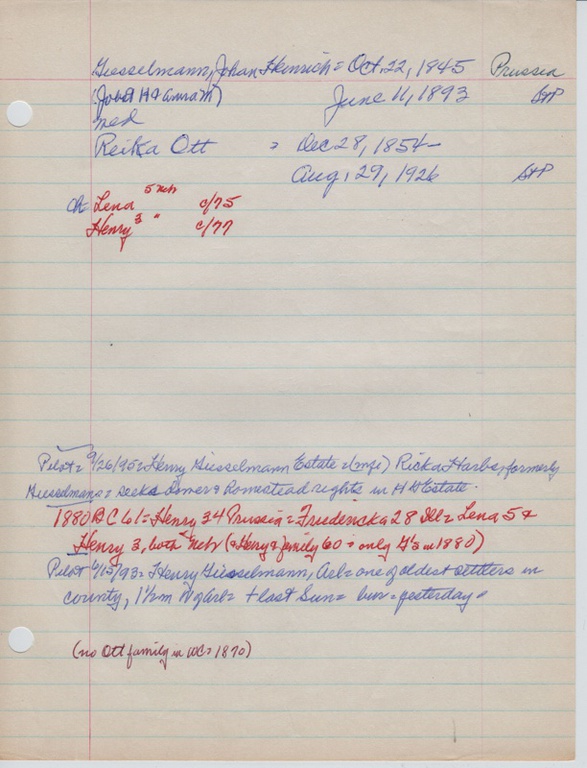 Giesselmann, Johan Heinrich = Oct. 22, 1845 Prussia
June 11, 1893
med
Reika Ott = Dec 28, 1854-
Aug. 29, 1926
ch= Lena 5 Neb c/75
Henry 3 " c/77
Pilot= 9/26/95= Henry Giesselmann Estate = Ricka Harbs, formerly
Giesselmann = seeks dower & homestead rights in H Estate.
1880 BC 61= Henry 34 Prussia= Fredericka 28 Ill= Lena 5 &
Henry 3, both Neb (& Henry & family 60 = only G's in 1880)
Pilot 6/15/93= Henry Giesselmann, Arl= one of oldest settlers in
county, 1½ m N of Arl= + last Sun= bur= yesterday=
(no Ott family in WC= 1870)